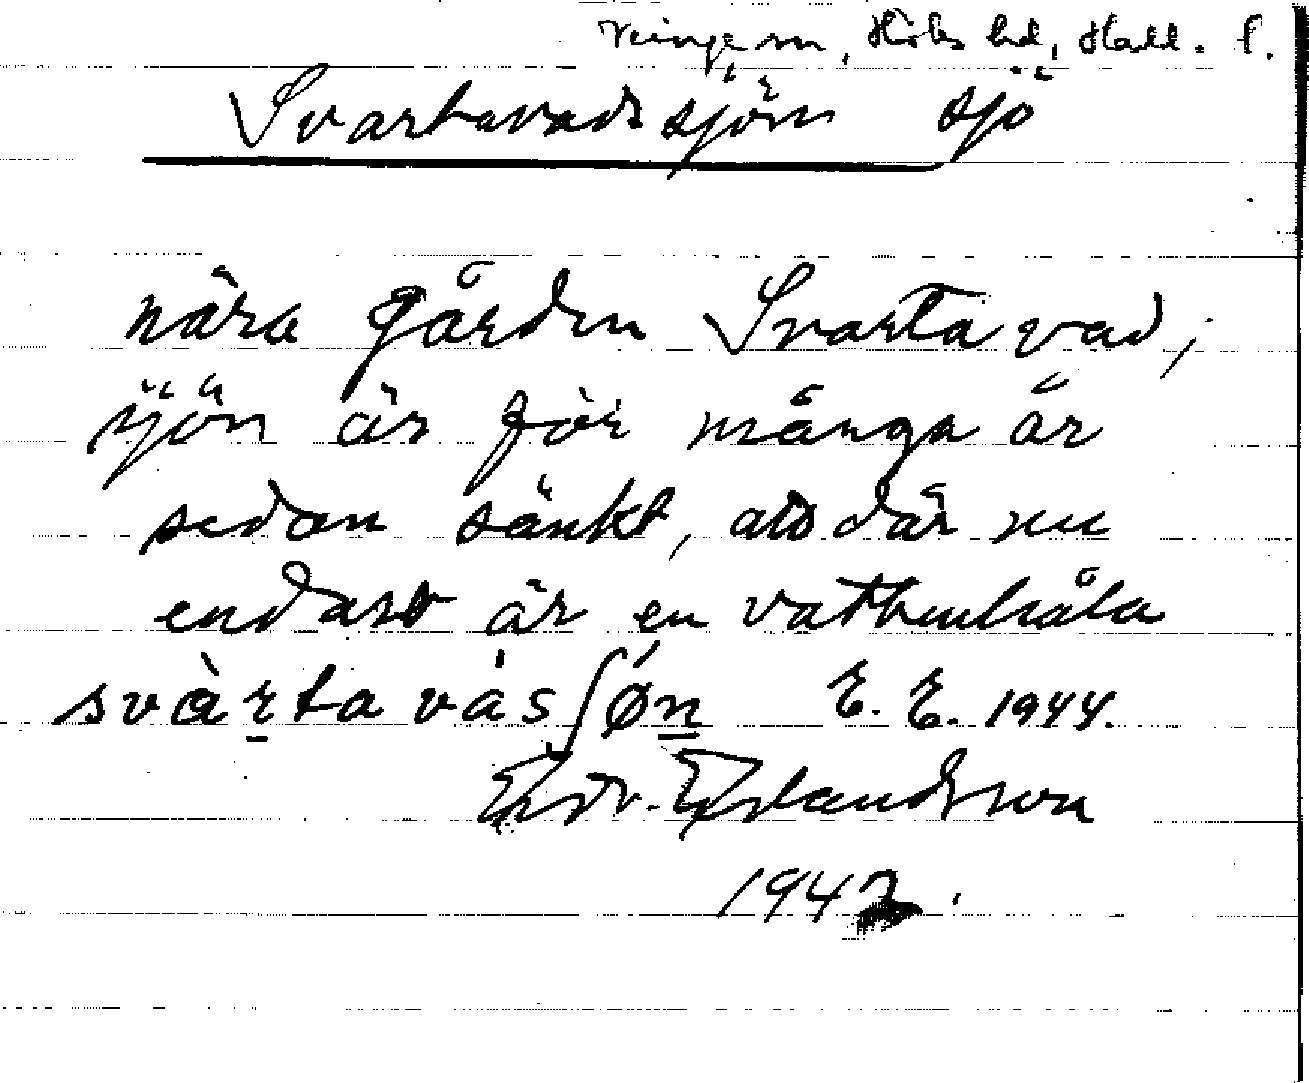 Veinge sn, Höks hd, Hall. l.
Svartavadssjön sjö
nära gården Svarta vad,
sjön är för många år
sedan sänkt, att där nu
endast är en vattenhåla
svàrtavásʃøn E. E. 1944.
Edv. Erlandsson
1942.